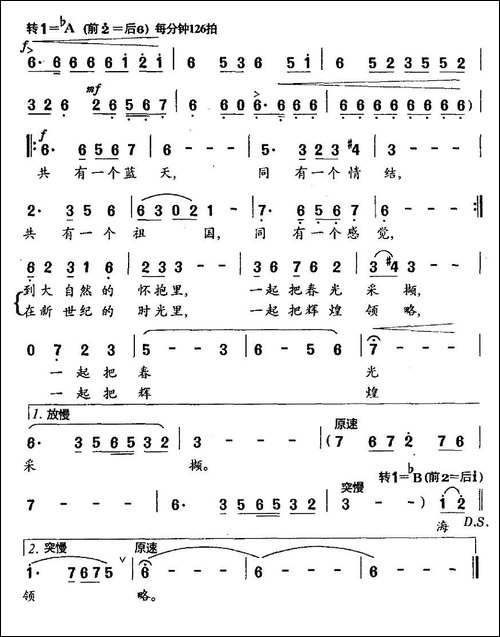 转1=♭A (前2̇=后6) 每分钟126拍
f
6· 6 6 6 6 i 2̇ i | 6 5 3 6 5 i | 6 5 2 3 5 5 2 |
mf
3 2 6 2 6 5 6 7 | 6 6 0 6· 6 6 6 | 6 6 6 6 6 6 6 6 )
f
‖: 6· 6 5 6 7 | 6 - - | 5· 3 2 3 #4 | 3 - - |
共 有一个蓝 天, 同 有一个情 结,
2· 3 5 6 | 6 3 0 2 1 - | 7· 6 5 6 7 | 6 - - :‖
共 有一个 祖 国, 同 有一个感 觉,
6 2 3 1 6 | 2 3 3 - - | 3 6 7 6 2 | 3 #4 3 - |
到大自然的 怀抱里, 一起把春光 采 撷,
在新世纪的 时光里, 一起把辉煌 领 略,
0 7 2 3 | 5 - - 3 | 6 - 5 6 | 7 - - |
一起把 春 光
一起把 辉 煌
1. 放慢
原速
6· 3 5 6 5 3 2 | 3 - - | (7 6 7 2 7 6 |
采 撷。
转1=♭B (前2=后i)
突慢
7 - - | 6· 3 5 6 5 3 2 | 3 - - ) i 2̇ ‖
海 D.S.
2. 突慢 原速
1· 7 6 7 5 ∨ | 6 - - | 6 - - | 6 - - ‖
领 略。